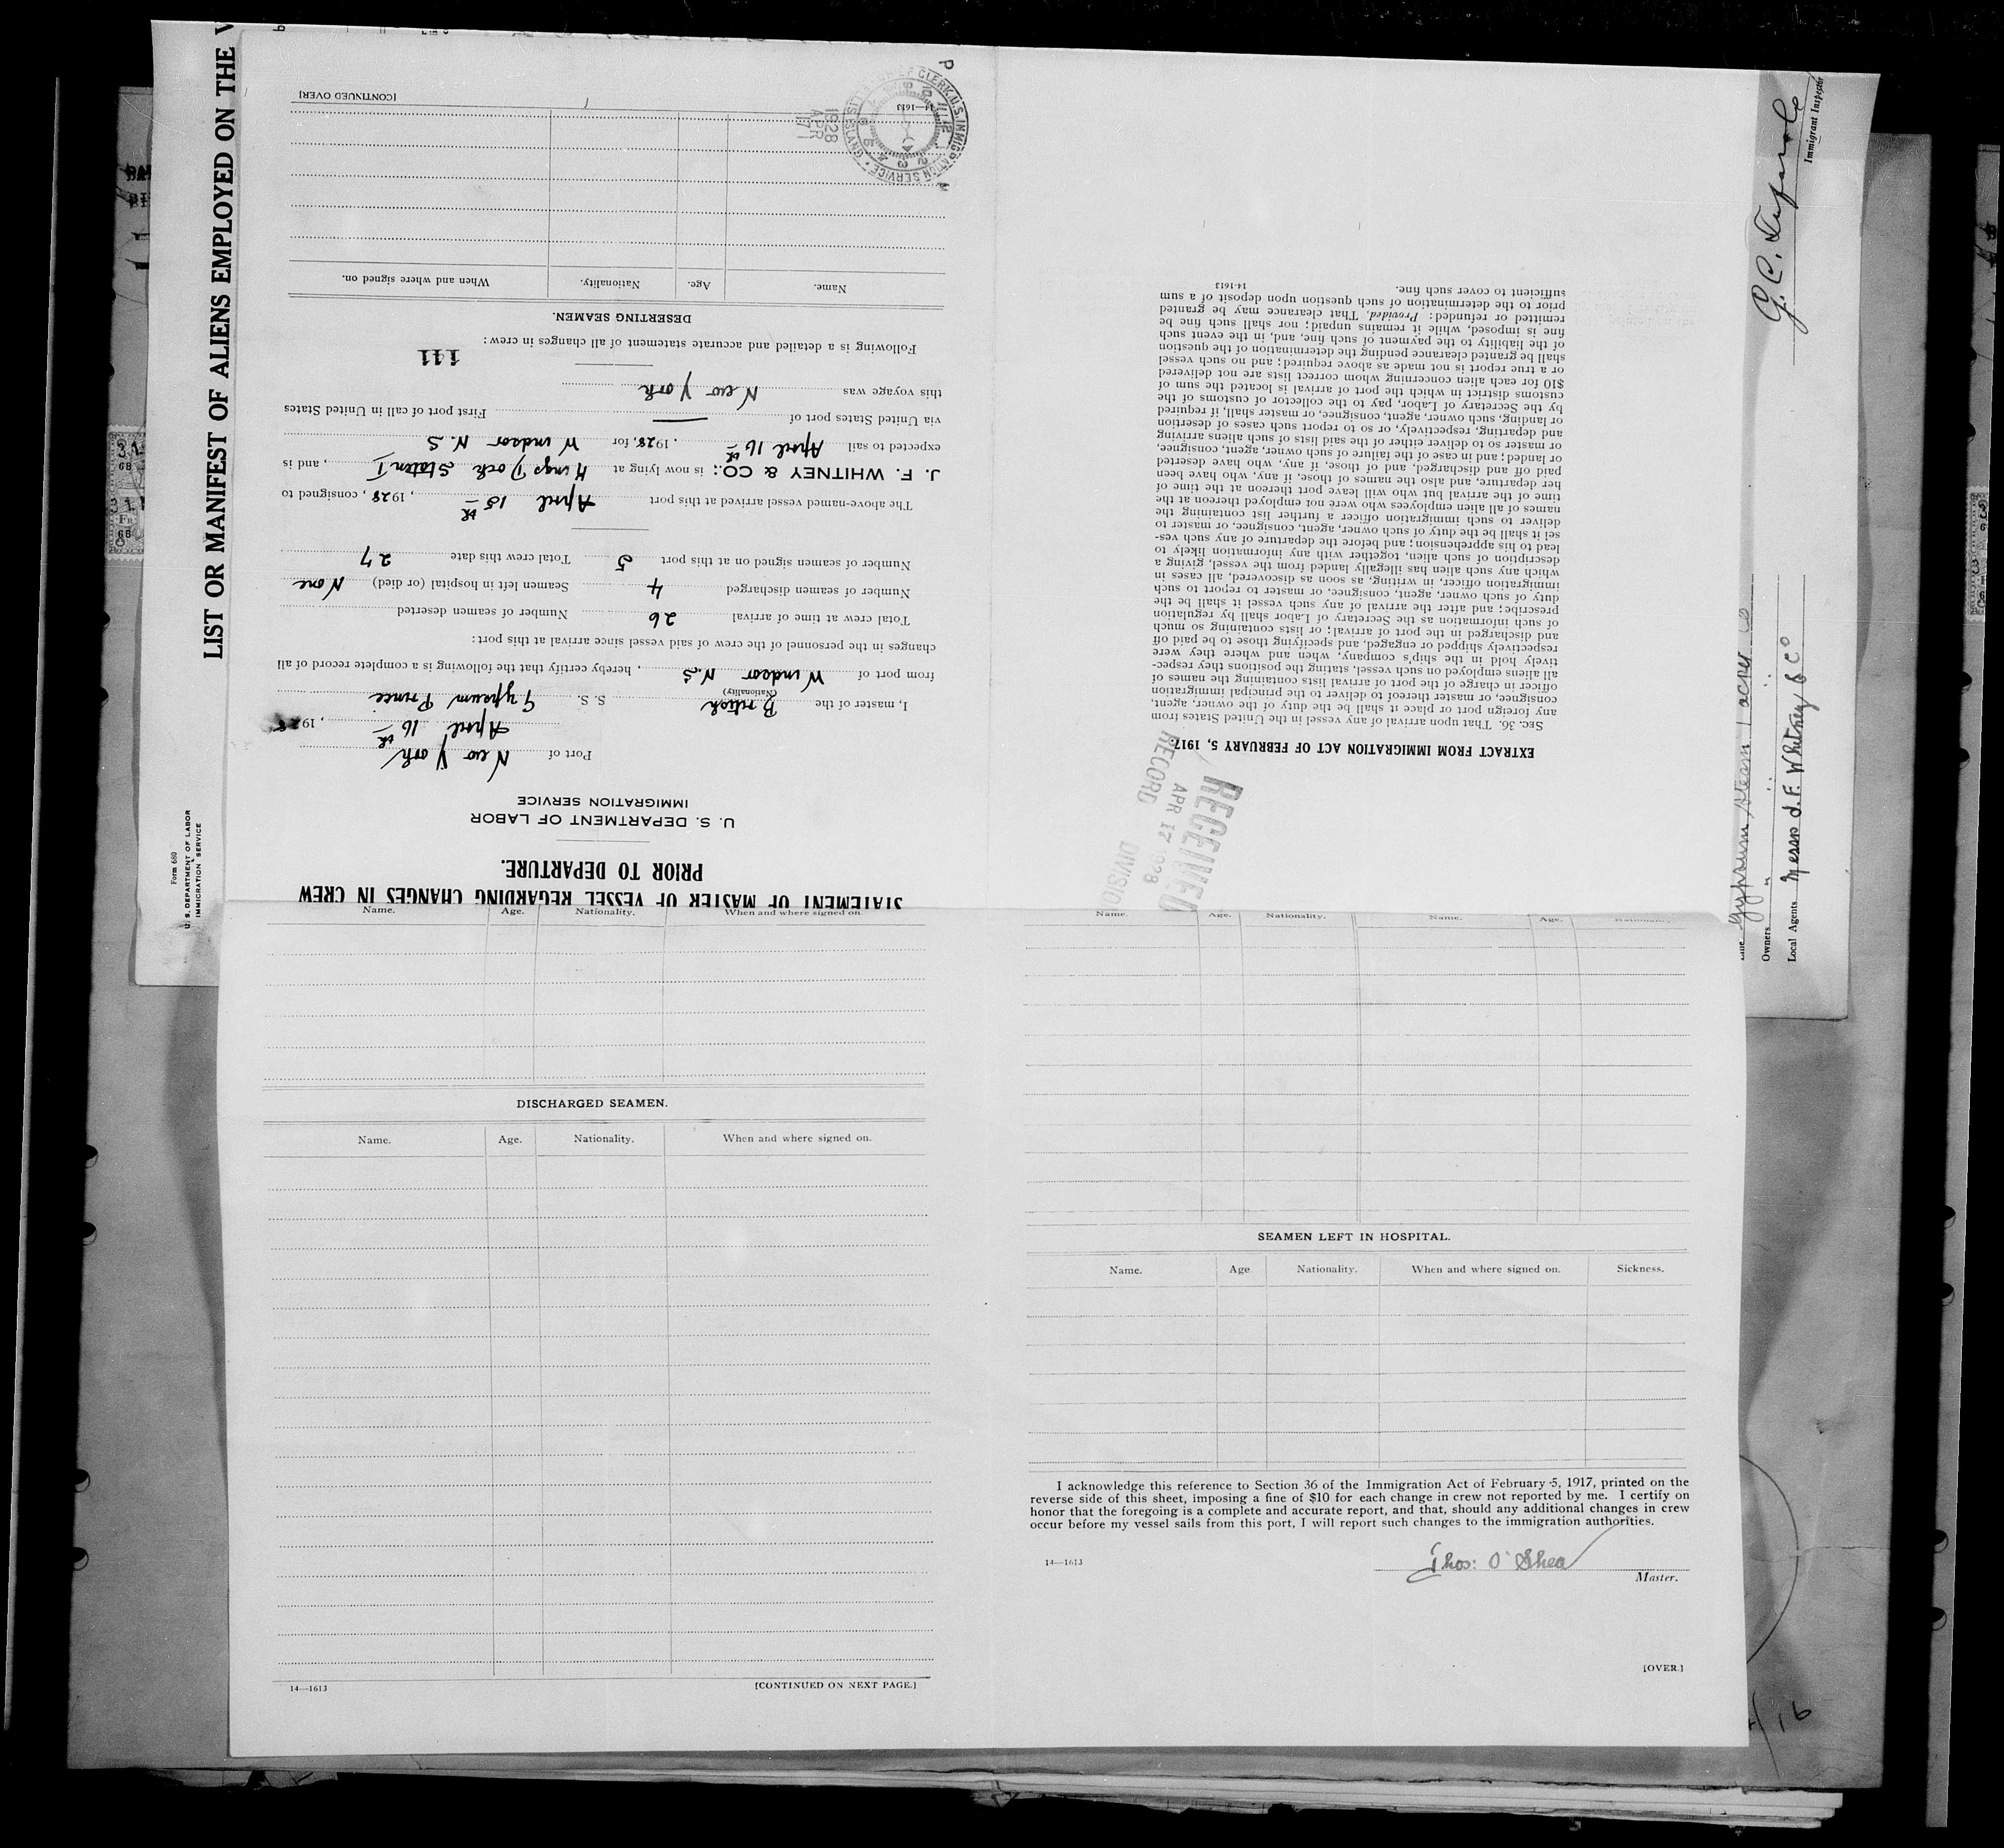 LIST OR MANIFEST OF ALIENS EMPLOYED ON THE
Form 680
U. S. DEPARTMENT OF LABOR
IMMIGRATION SERVICE
STATEMENT OF MASTER OF VESSEL REGARDING CHANGES IN CREW
PRIOR TO DEPARTURE.
U. S. DEPARTMENT OF LABOR
IMMIGRATION SERVICE
Port of New York
April 16th, 1928
I, master of the British S. S. Gypsum Prince
(Nationality)
from port of Windsor N.S, hereby certify that the following is a complete record of all
changes in the personnel of the crew of said vessel since arrival at this port:
Total crew at time of arrival 26 Number of seamen deserted
Number of seamen discharged 4 Seamen left in hospital (or died) None
Number of seamen signed on at this port 5 Total crew this date 27
The above-named vessel arrived at this port April 15th, 1928, consigned to
J. F. WHITNEY & CO.: is now lying at Kings Dock Staten I, and is
expected to sail April 16th, 1928, for Windsor N.S
via United States port of — First port of call in United States
this voyage was New York
141
Following is a detailed and accurate statement of all changes in crew:
DESERTING SEAMEN.
Name. Age. Nationality. When and where signed on.
14—1613
[CONTINUED OVER]
1928
APR
17
RECEIVED
APR 17 1928
RECORD DIVISION
EXTRACT FROM IMMIGRATION ACT OF FEBRUARY 5, 1917.
SEC. 36. That upon arrival of any vessel in the United States from
any foreign port or place it shall be the duty of the owner, agent,
consignee, or master thereof to deliver to the principal immigration
officer in charge of the port of arrival lists containing the names of
all aliens employed on such vessel, stating the positions they respec-
tively hold in the ship's company, when and where they were
respectively shipped or engaged, and specifying those to be paid off
and discharged in the port of arrival; or lists containing so much
of such information as the Secretary of Labor shall by regulation
prescribe; and after the arrival of any such vessel it shall be the
duty of such owner, agent, consignee, or master to report to such
immigration officer, in writing, as soon as discovered, all cases in
which any such alien has illegally landed from the vessel, giving a
description of such alien, together with any information likely to
lead to his apprehension; and before the departure of any such ves-
sel it shall be the duty of such owner, agent, consignee, or master to
deliver to such immigration officer a further list containing the
names of all alien employees who were not employed thereon at the
time of the arrival but who will leave port thereon at the time of
her departure, and also the names of those, if any, who have been
paid off and discharged, and of those, if any, who have deserted
or landed; and in case of the failure of such owner, agent, consignee,
or master so to deliver either of the said lists of such aliens arriving
and departing, respectively, or so to report such cases of desertion
or landing, such owner, agent, consignee, or master shall, if required
by the Secretary of Labor, pay to the collector of customs of the
customs district in which the port of arrival is located the sum of
$10 for each alien concerning whom correct lists are not delivered
or a true report is not made as above required; and no such vessel
shall be granted clearance pending the determination of the question
of the liability to the payment of such fine, and, in the event such
fine is imposed, while it remains unpaid; nor shall such fine be
remitted or refunded: Provided, That clearance may be granted
prior to the determination of such question upon deposit of a sum
sufficient to cover such fine.
14-1613
Immigrant Inspector
Gypsum
Owners
Local Agents Messrs J. F. Whitney & Co
Name. Age. Nationality. When and where signed on.
DISCHARGED SEAMEN.
Name. Age. Nationality. When and where signed on.
14—1613
[CONTINUED ON NEXT PAGE.]
Name. Age. Nationality. Name. Age. Nationality.
SEAMEN LEFT IN HOSPITAL.
Name. Age Nationality. When and where signed on. Sickness.
I acknowledge this reference to Section 36 of the Immigration Act of February 5, 1917, printed on the
reverse side of this sheet, imposing a fine of $10 for each change in crew not reported by me. I certify on
honor that the foregoing is a complete and accurate report, and that, should any additional changes in crew
occur before my vessel sails from this port, I will report such changes to the immigration authorities.
14—1613
Thos: O'Shea
Master.
[OVER.]
16